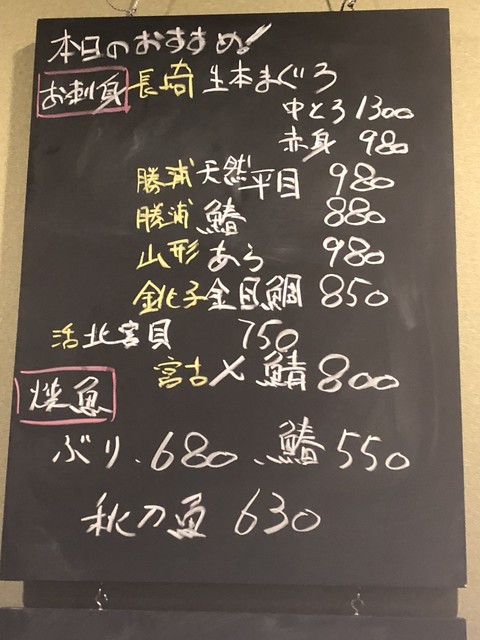 本日のおすすめ!
お刺身 長崎 生本まぐろ
中とろ 1300
赤身 980
勝浦 天然平目 980
勝浦 鰆 880
山形 あら 980
銚子 金目鯛 850
活 北寄貝 750
宮古 〆鯖 800
焼魚
ぶり、680 、鰆 550
秋刀魚 630